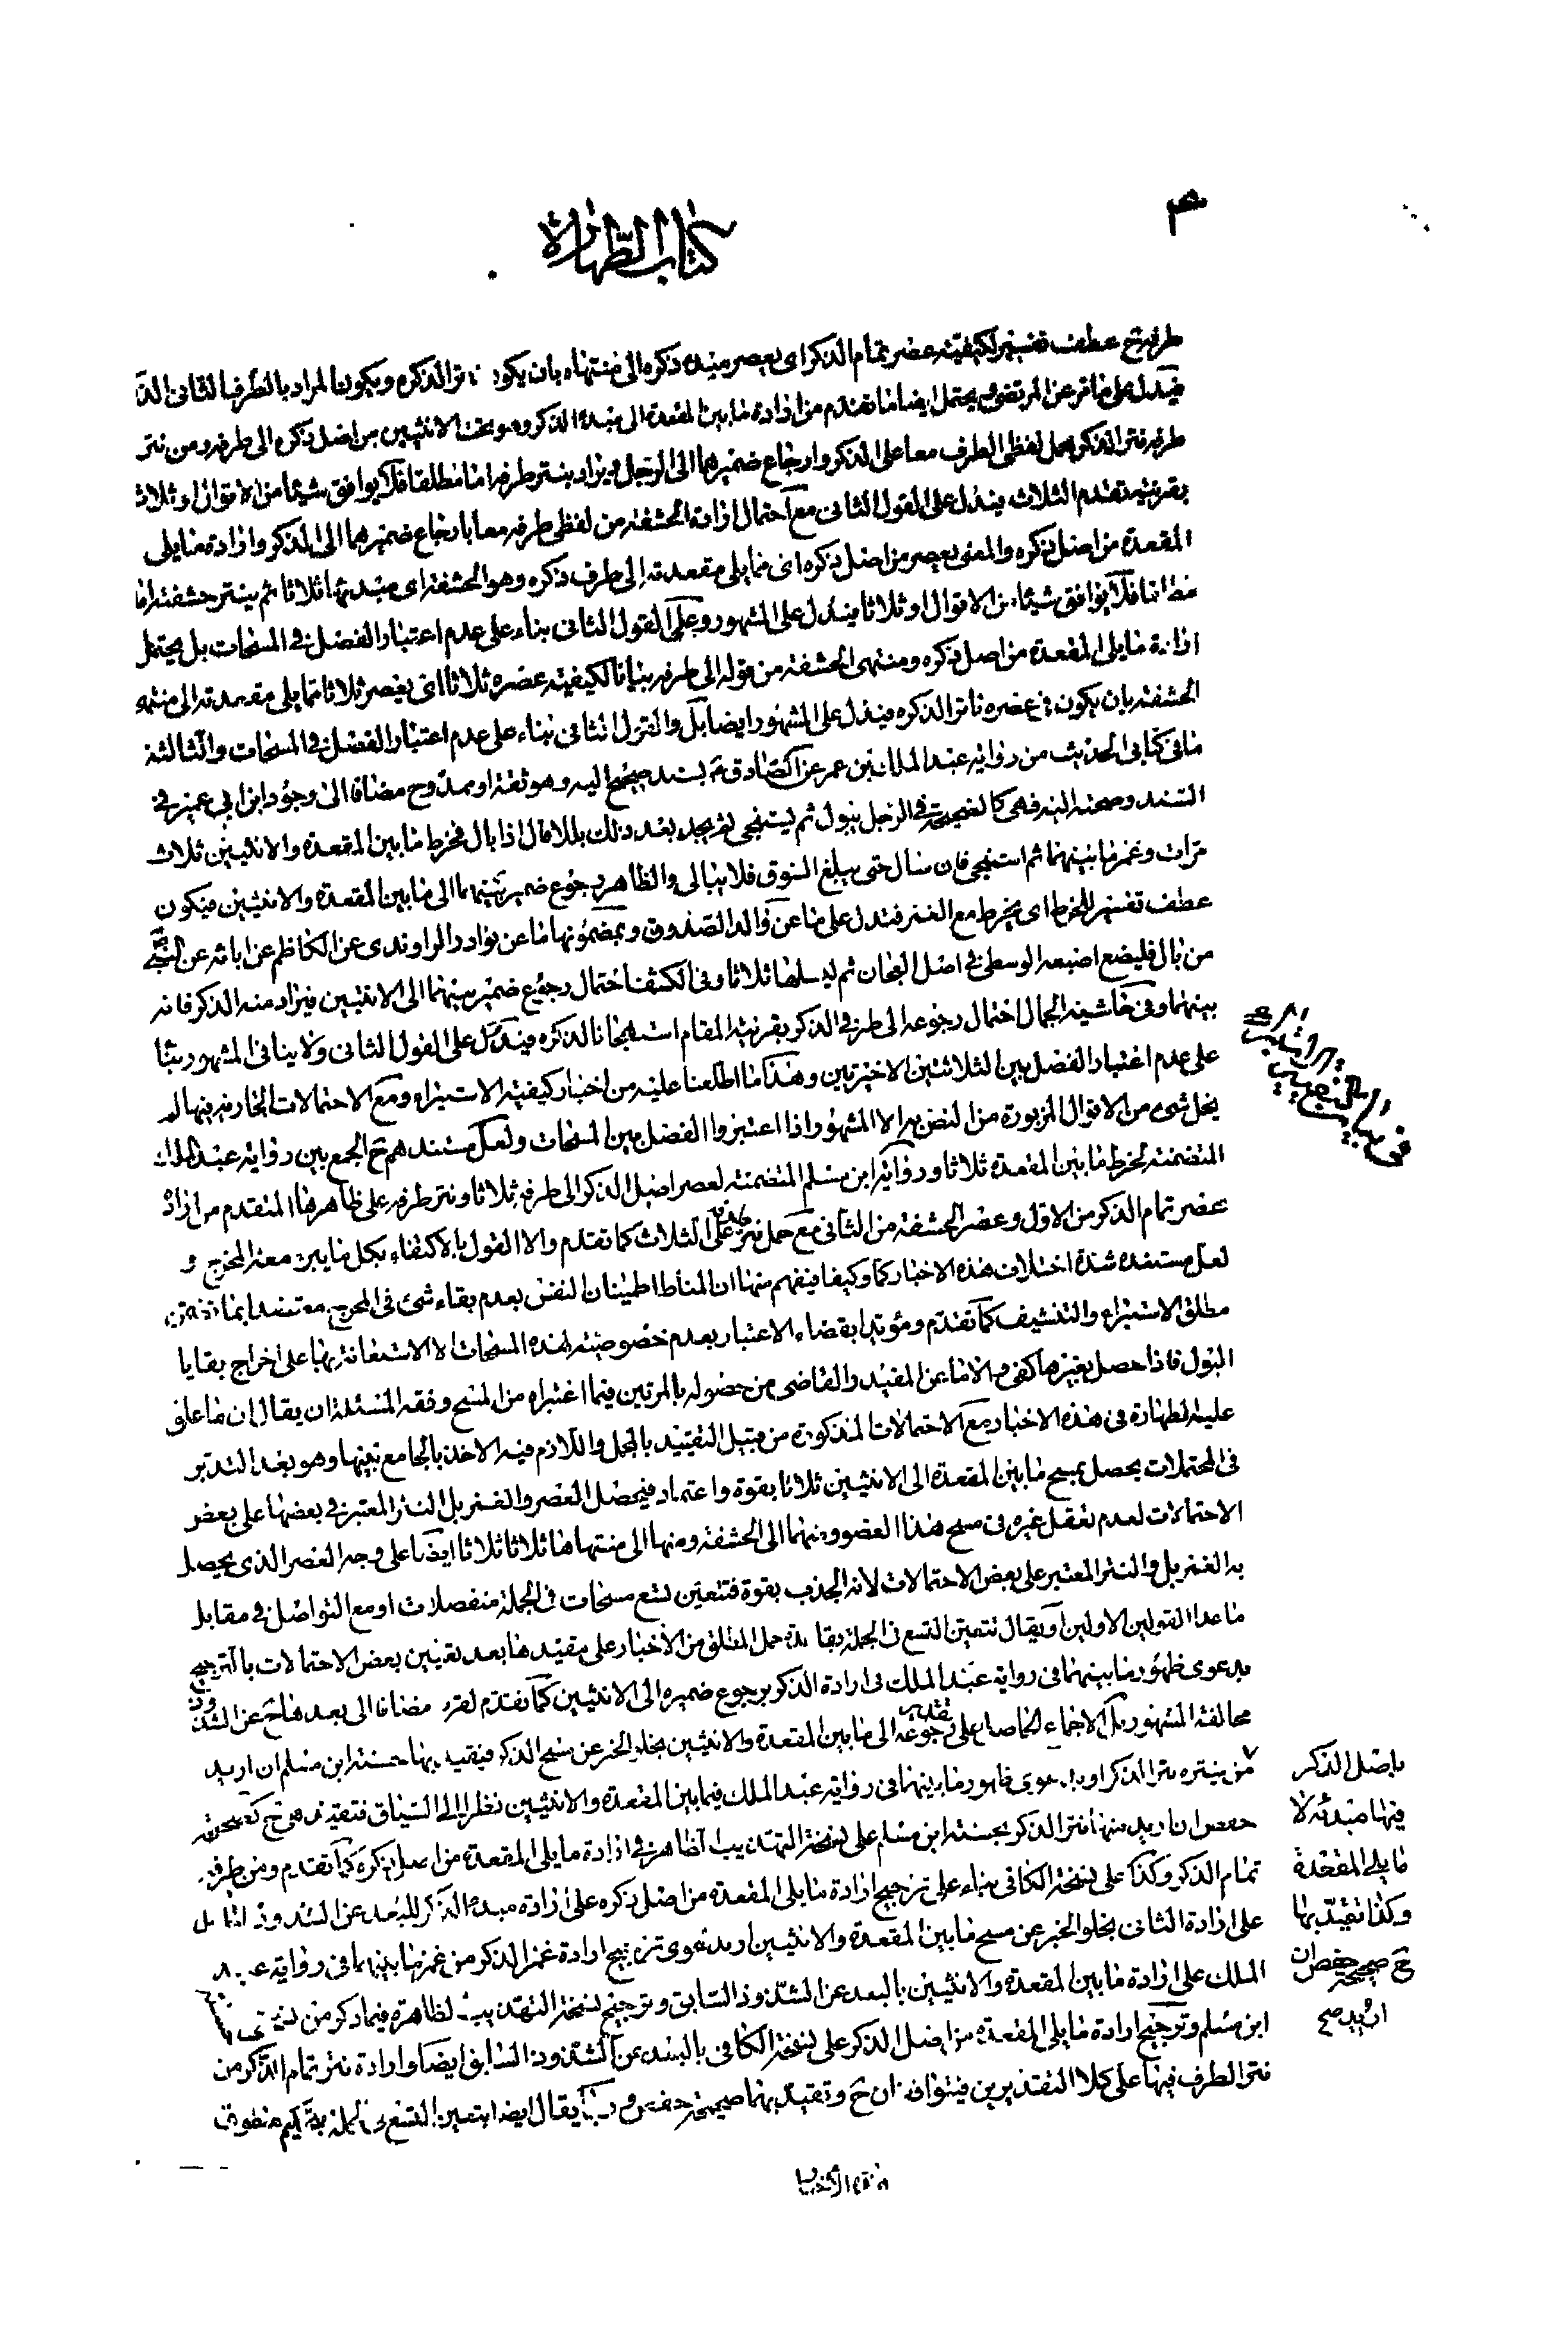 كتاب الطهارة
طرفه ح عطف تفسير لكيفيته عصر تمام الذكر اى يعصر مبدء ذكره الى منتهاه بان يكون نتر الذكره ويكون المراد بالطرف الثانى الذكر
فيدل على ما مر عن المرتضى يحتمل ايضا ما تقدم من ارادة ما بين المقعدة الى مبدء الذكر وهو تحت الانثيين من اصل ذكره الى طرفه ومن نتر
طرفه نتر الذكر بحمل لفظى الطرف معا على الذكر وارجاع ضميرهما الى الرجل ويراد بنتر طرفه اما مطلقا فلا يوافق شيئا من الاقوال او ثلاث
بقرينة تقدم الثلاث فيدل على القول الثانى مع احتمال ارادة الحشفة من لفظى طرفه معا بارجاع ضميرهما الى الذكر وارادة ما يلى
المقعدة من اصل ذكره والمعنى يعصر من اصل ذكره اى مما يلى مقعدته الى طرف ذكره وهو الحشفة اى مبدئها ثلاثا ثم ينتر حشفته اما
مطلقا فلا يوافق شيئا من الاقوال او ثلاثا فيدل على المشهور وعلى القول الثانى بناء على عدم اعتبار الفصل فى المسحات بل يحتمل
ارادة ما يلى المقعدة من اصل ذكره ومنتهى الحشفة من قوله الى طرفه بيانا لكيفية عصره ثلاثا اى يعصر ثلاثا مما يلى مقعدته الى منتهى
الحشفة بان يكون فى عصره ناتر الذكره فيدل على المشهور ايضا بل والقول الثانى بناء على عدم اعتبار الفصل فى المسحات والثالثة
ما فى كتابى الحديث من رواية عبد الملك بن عمر عن الصادق ع بسند صحيح اليه وهو ثقة او ممدوح مضافا الى وجود ابن ابى عمير فى
السند وصحته اليه فهى كالصحيحة فى الرجل يبول ثم يستنجى ثم يجد بعد ذلك بللا قال اذا بال فخرط ما بين المقعدة والانثيين ثلاث
مرات وغمز ما بينهما ثم استنجى فان سال حتى يبلغ السوق فلا يبالى والظاهر رجوع ضمير بينهما الى ما بين المقعدة والانثيين فيكون
عطف تفسير للخرط اى يخرط مع الغمز فتدل على ما عن والد الصدوق وبمضمونها ما عن نوادر الراوندى عن الكاظم عن ابائه عن النبى ص
من بال فليضع اصبعه الوسطى فى اصل العجان ثم ليسلها ثلاثا وفى الكشف احتمال رجوع ضمير بينهما الى الانثيين فيراد منه الذكر فانه
بينهما وفى حاشية الجمال احتمال رجوعه الى طرفى الذكر بقرينة المقام استهجانا لذكره فيدل على القول الثانى ولا ينافى المشهور بناء
على عدم اعتبار الفصل بين الثلاثتين الاخيرتين وهذا ما اطلعنا عليه من اخبار كيفية الاستبراء ومع الاحتمالات الجارية فيها لم
يخل شىء من الاقوال المزبورة من النص به الا المشهور اذا اعتبروا الفصل بين المسحات ولعل مستندهم ح الجمع بين رواية عبد الملك
المتضمنة لخرط ما بين المقعدة ثلاثا ورواية ابن مسلم المتضمنة لعصر اصل الذكر الى طرفه ثلاثا ونتر طرفه على ظاهرها المتقدم من ارادة
عصر تمام الذكر من الاول وعصر الحشفة من الثانى مع حمل نتر طرفه على الثلاث كما تقدم والا القول بالاكتفاء بكل ما يبرز معه المخرج و
لعل مستنده شدة اختلاف هذه الاخبار كما وكيفا فيفهم منها ان المناط اطمينان النفس بعدم بقاء شئ فى المخرج معتضدا بما
مطلق الاستبراء والتنشيف كما تقدم ومؤيدا بقضاء الاعتبار بعدم خصوصية لهذه المسحات الا الاستعانة بها على اخراج بقايا
البول فاذا حصل بغيرها كفى والا ما عن المفيد والقاضى من حصوله بالمرتين فيما اعتبراه من المسح وفقه المسئلة ان يقال ان ما علق
عليه الطهارة فى هذه الاخبار مع الاحتمالات المذكورة من قبيل التقييد بالمجمل واللازم فيه الاخذ بالجامع بينها وهو بعد التدبر
فى المحتملات يحصل بمسح ما بين المقعدة الى الانثيين ثلاثا بقوة واعتماد فيحصل العصر والغمز بل النتر المعتبر فى بعضها على بعض
الاحتمالات لعدم تعقل غيره فى مسح هذا العضو ومنهما الى الحشفة ومنها الى منتهاها ثلاثا ثلاثا ايضا على وجه العصر الذى يحصل
به الغمز بل والنتر المعتبر على بعض الاحتمالات لانه الجذب بقوة فتتعين تسع مسحات فى الجملة منفصلات او مع التواصل فى مقابل
ما عدا القولين الاولين او يقال تتعين التسع فى الجملة بقاعدة حمل المطلق من الأخبار على مقيدها بعد تعيين بعض الاحتمالات بالترجيح
بدعوى ظهور ما بينهما فى رواية عبد الملك فى ارادة الذكر برجوع ضميره الى الانثيين كما تقدم لقربه مضافا الى بعد ها ح عن الشذوذ
مخالفة المشهور بل الاجماع الحاصل على تقدير رجوعه الى ما بين المقعدة والانثيين بخلو الخبر عن مسح الذكر فيقيد بها حسنة ابن مسلم ان اريد
من ينتره نتر الذكر او بدعوى ظهور ما بينهما فى رواية عبد الملك فيما بين المقعدة والانثيين نظرا الى السياق فتقيد هى ح كصحيحة
حفص ان اريد منها نتر الذكر بحسنة ابن مسلم على نسخة التهذيب الظاهر فى ارادة ما يلى المقعدة من اصل ذكره كما تقدم ومن طرفه
تمام الذكر وكذا على نسخة الكافى بناء على ترجيح ارادة ما يلى المقعدة من اصل ذكره على ارادة مبدء الذكر للبعد عن الشذوذ
على ارادة الثانى بخلو الخبر عن مسح ما بين المقعدة والانثيين او بدعوى ترجيح ارادة غمز الذكر من غمز ما بينهما فى رواية عبد
الملك على ارادة ما بين المقعدة والانثيين بالبعد عن الشذوذ السابق وترجيح نسخة التهذيب الظاهرة فيما ذكر من
ابن مسلم وترجيح ارادة ما يلى المقعدة من اصل الذكر على نسخة الكافى بالبعد عن الشذوذ السابق ايضا وارادة نتر تمام الذكر من
نتر الطرف فيها على كلا التقديرين فيتوافقان ح وتقيد بهما صحيحة حفص و يقال ايضا بتعين التسع
باصل الذكر
فيها مبدئه لا
ما يلى المقعدة
وكذا تقيد بها
ح صحيحة حفص ان
اريد صح